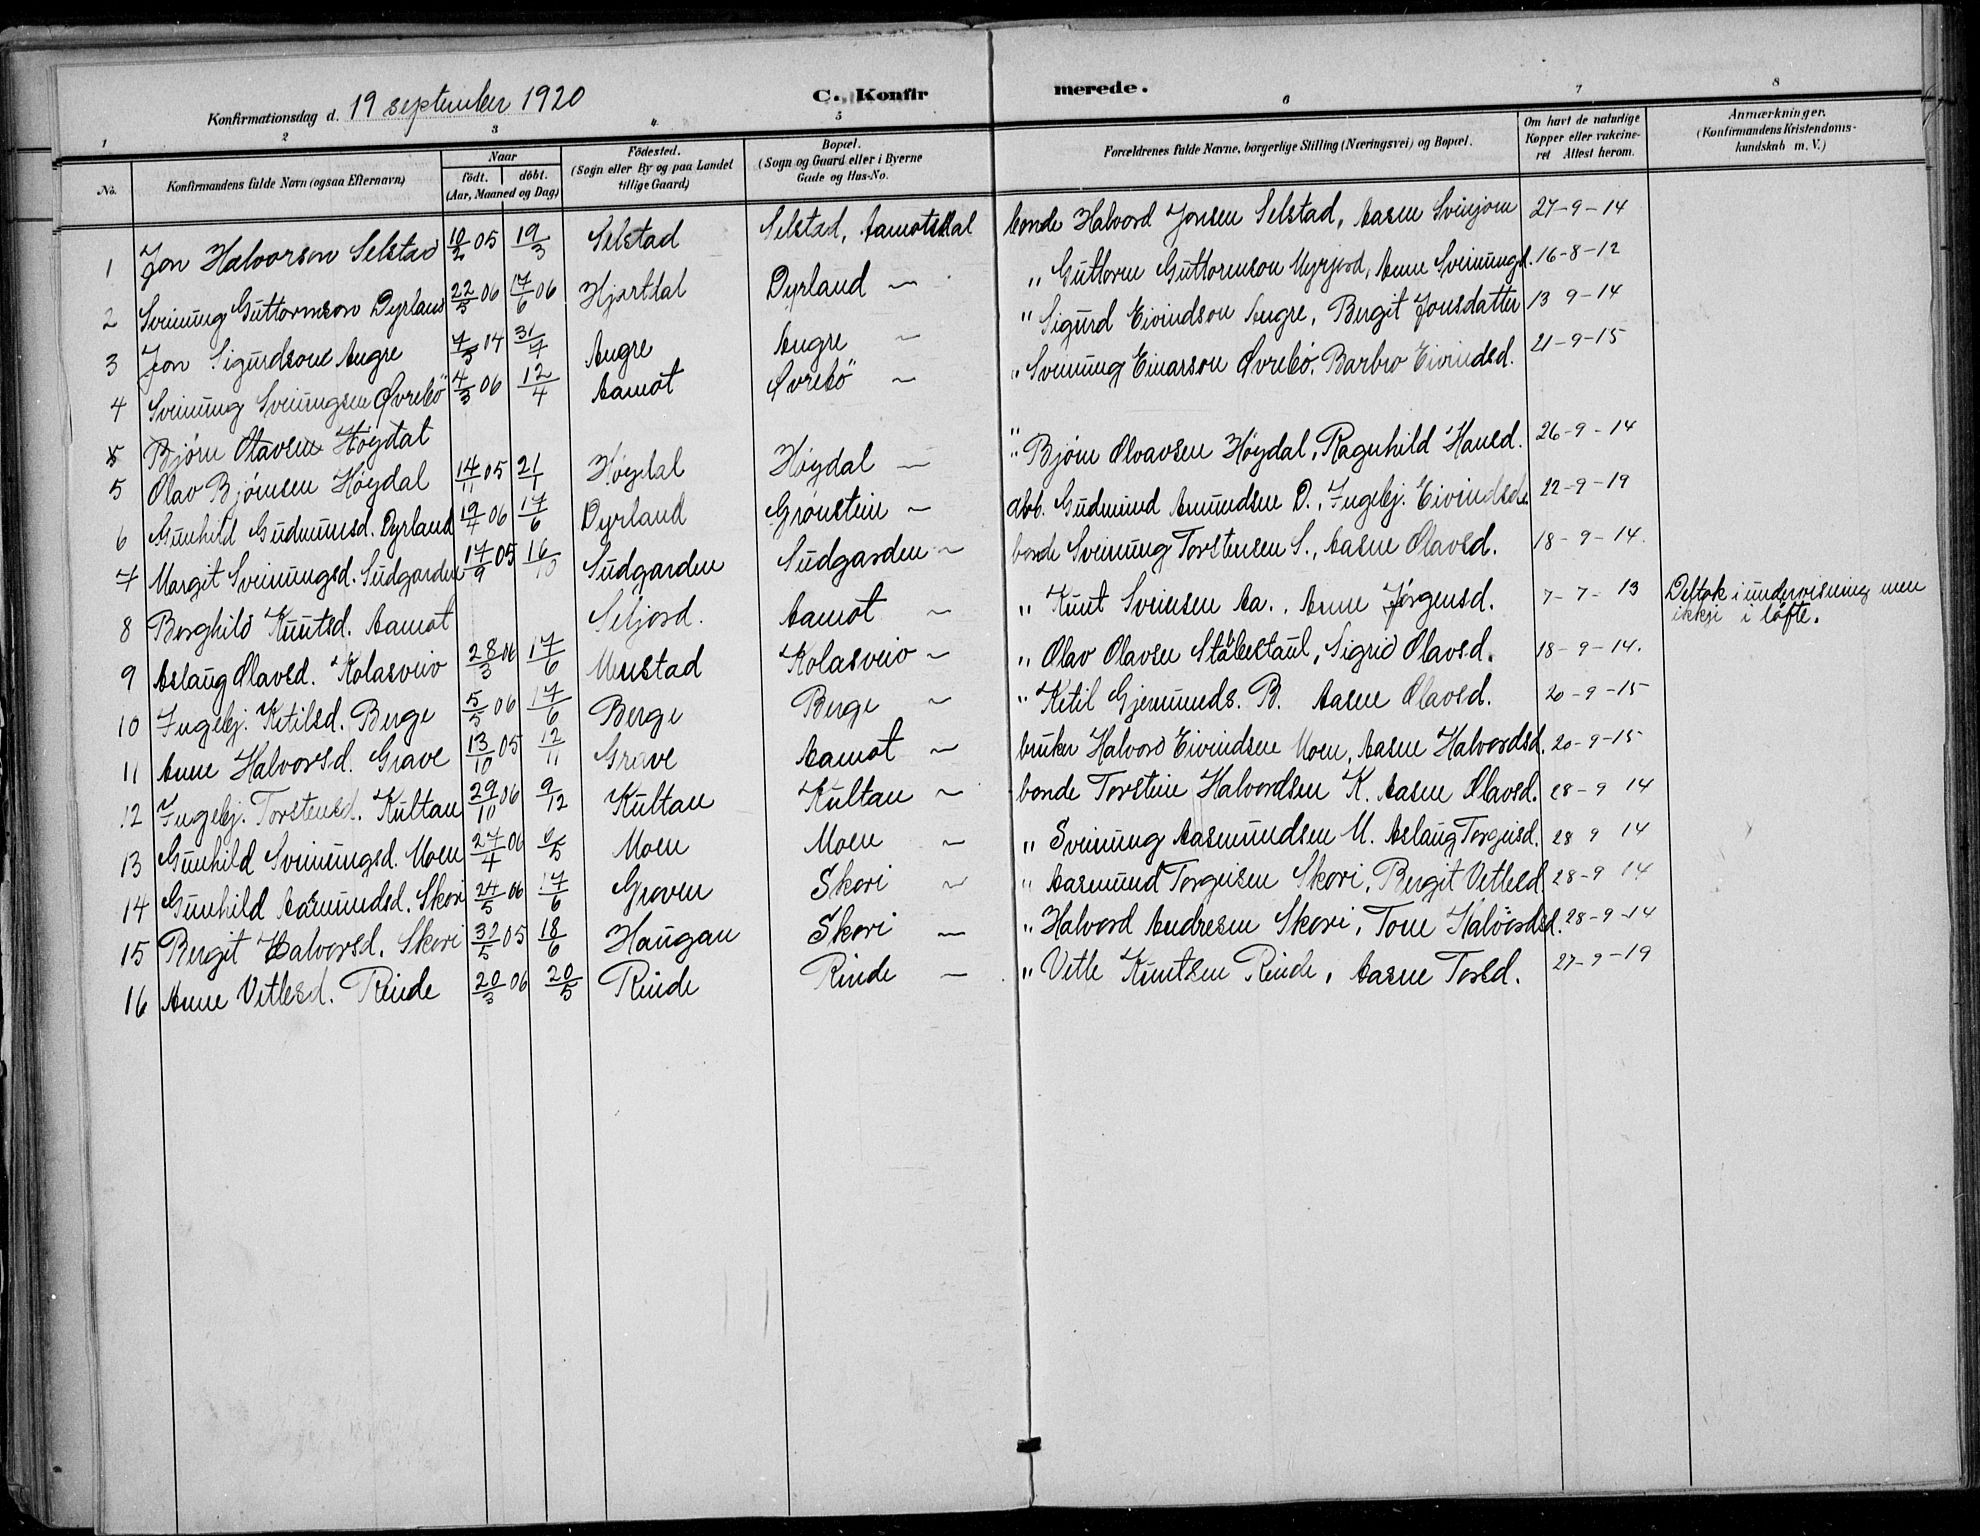 Konfirmationsdag d. 19 september 1920
C. Konfirmerede.
1 2 3 4 5 6 7 8
No. Konfirmandens fulde Navn (ogsaa Efternavn) Naar födt. döbt. (Aar, Maaned og Dag) Födested. (Sogn eller By og paa Landet tillige Gaard) Bopæl. (Sogn og Gaard eller i Byerne Gade og Hus-No. Forældrenes fulde Navne, borgerlige Stilling (Næringsvei) og Bopæl. Om havt de naturlige Kopper eller vakcineret Attest herom. Anmærkninger. (Konfirmandens Kristendomskundskab m. V.)
1 Jon Halvorson Selstad 10/2 05 19/3 Selstad Selstad, Aamotsdal bonde Halvord Jonsen Selstad, Aasne Svinjom 27-9-14
2 Sveinung Guttormson Dyrland 22/5 06 17/6 06 Hjartdal Dyrland — " Guttorm Guttormson Myrjord, Anne Sveinungd. 16-8-12
3 Jon Sigurdsone Augre 7/5 04 31/7 Augre Augre — " Sigurd Eivindson Augre, Bergit Jonsdatter 13 9-14
4 Sveinung Sveinungsen Øvrebö 4/3 06 12/4 Aamot Øvrebö — " Sveinung Einarson Øvrebö. Barbro Eivindsd. 21-9-15
5 Bjørn Olavsen Høydal "
5 Olav Bjørnsen Høydal 14/11 05 21/1 Høydal Høydal — " Bjørn Olvavsen Høydal, Ragnhild Hansd. 26-9-14
6 Gunhild Gudmunsd. Dyrland 19/4 06 17/6 Dyrland Grønstein — Gudmund Amundsen D., Ingebj. Eivindsd. 22-9-19
7 Margit Sveinungsd. Sudgarden 17/9 05 16/10 Sudgarden Sudgarden — bonde Sveinung Torstensen S., Aasne Olavsd. 18-9-14.
8 Borghild Knutsd. Aamot Seljord. Aamot — " Knut Sveinsen Aa., Anne Jørgensd. 7-7-13 Deltok i undervisning men ikkje i løfte.
9 Aslaug Olavsd. Kolasveiv 28/3 06 17/6 Meustad Kolasveiv — " Olav Olavsen Stålestaul, Sigrid Olavsd. 18-9-14.
10 Ingebj. Ketilsd. Berge 5/5 06 17/6 Berge Berge — " Ketil Gjermunds. B. Aasne Olavsd. 20-9-15
11 Anne Halvorsd. Grave 13/10 05 12/11 Grave Aamot — bruker Halvord Eivindsen Moen, Aasne Halvordsd. 20-9-15
12 Ingebj. Torstensd. Kultan 29/10 06 9/12 Kultan Kultan — bonde Torstein Halvordsen K. Aasne Olavsd. 28-9 14
13 Gunhild Sveinungsd. Moen 27/4 06 6/5 Moen Moen — " Sveinung Aasmundsen M. Aslaug Torgeisd. 28 9 14
14 Gunhild Aasmundsd. Skori 24/5 06 17/6 Groven Skori — " Aasmund Torgeisen Skori, Bergit Vetlesd. 28-9 14
15 Bergit Halvorsd. Skori 32/5 05 18/6 Haugan Skori — " Halvord Andresen Skori, Tone Halvordsd. 28-9-14
16 Anne Vetlesd. Rinde 20/3 06 20/5 Rinde Rinde — " Vetle Knutsen Rinde, Aasne Torsd. 27-9-19